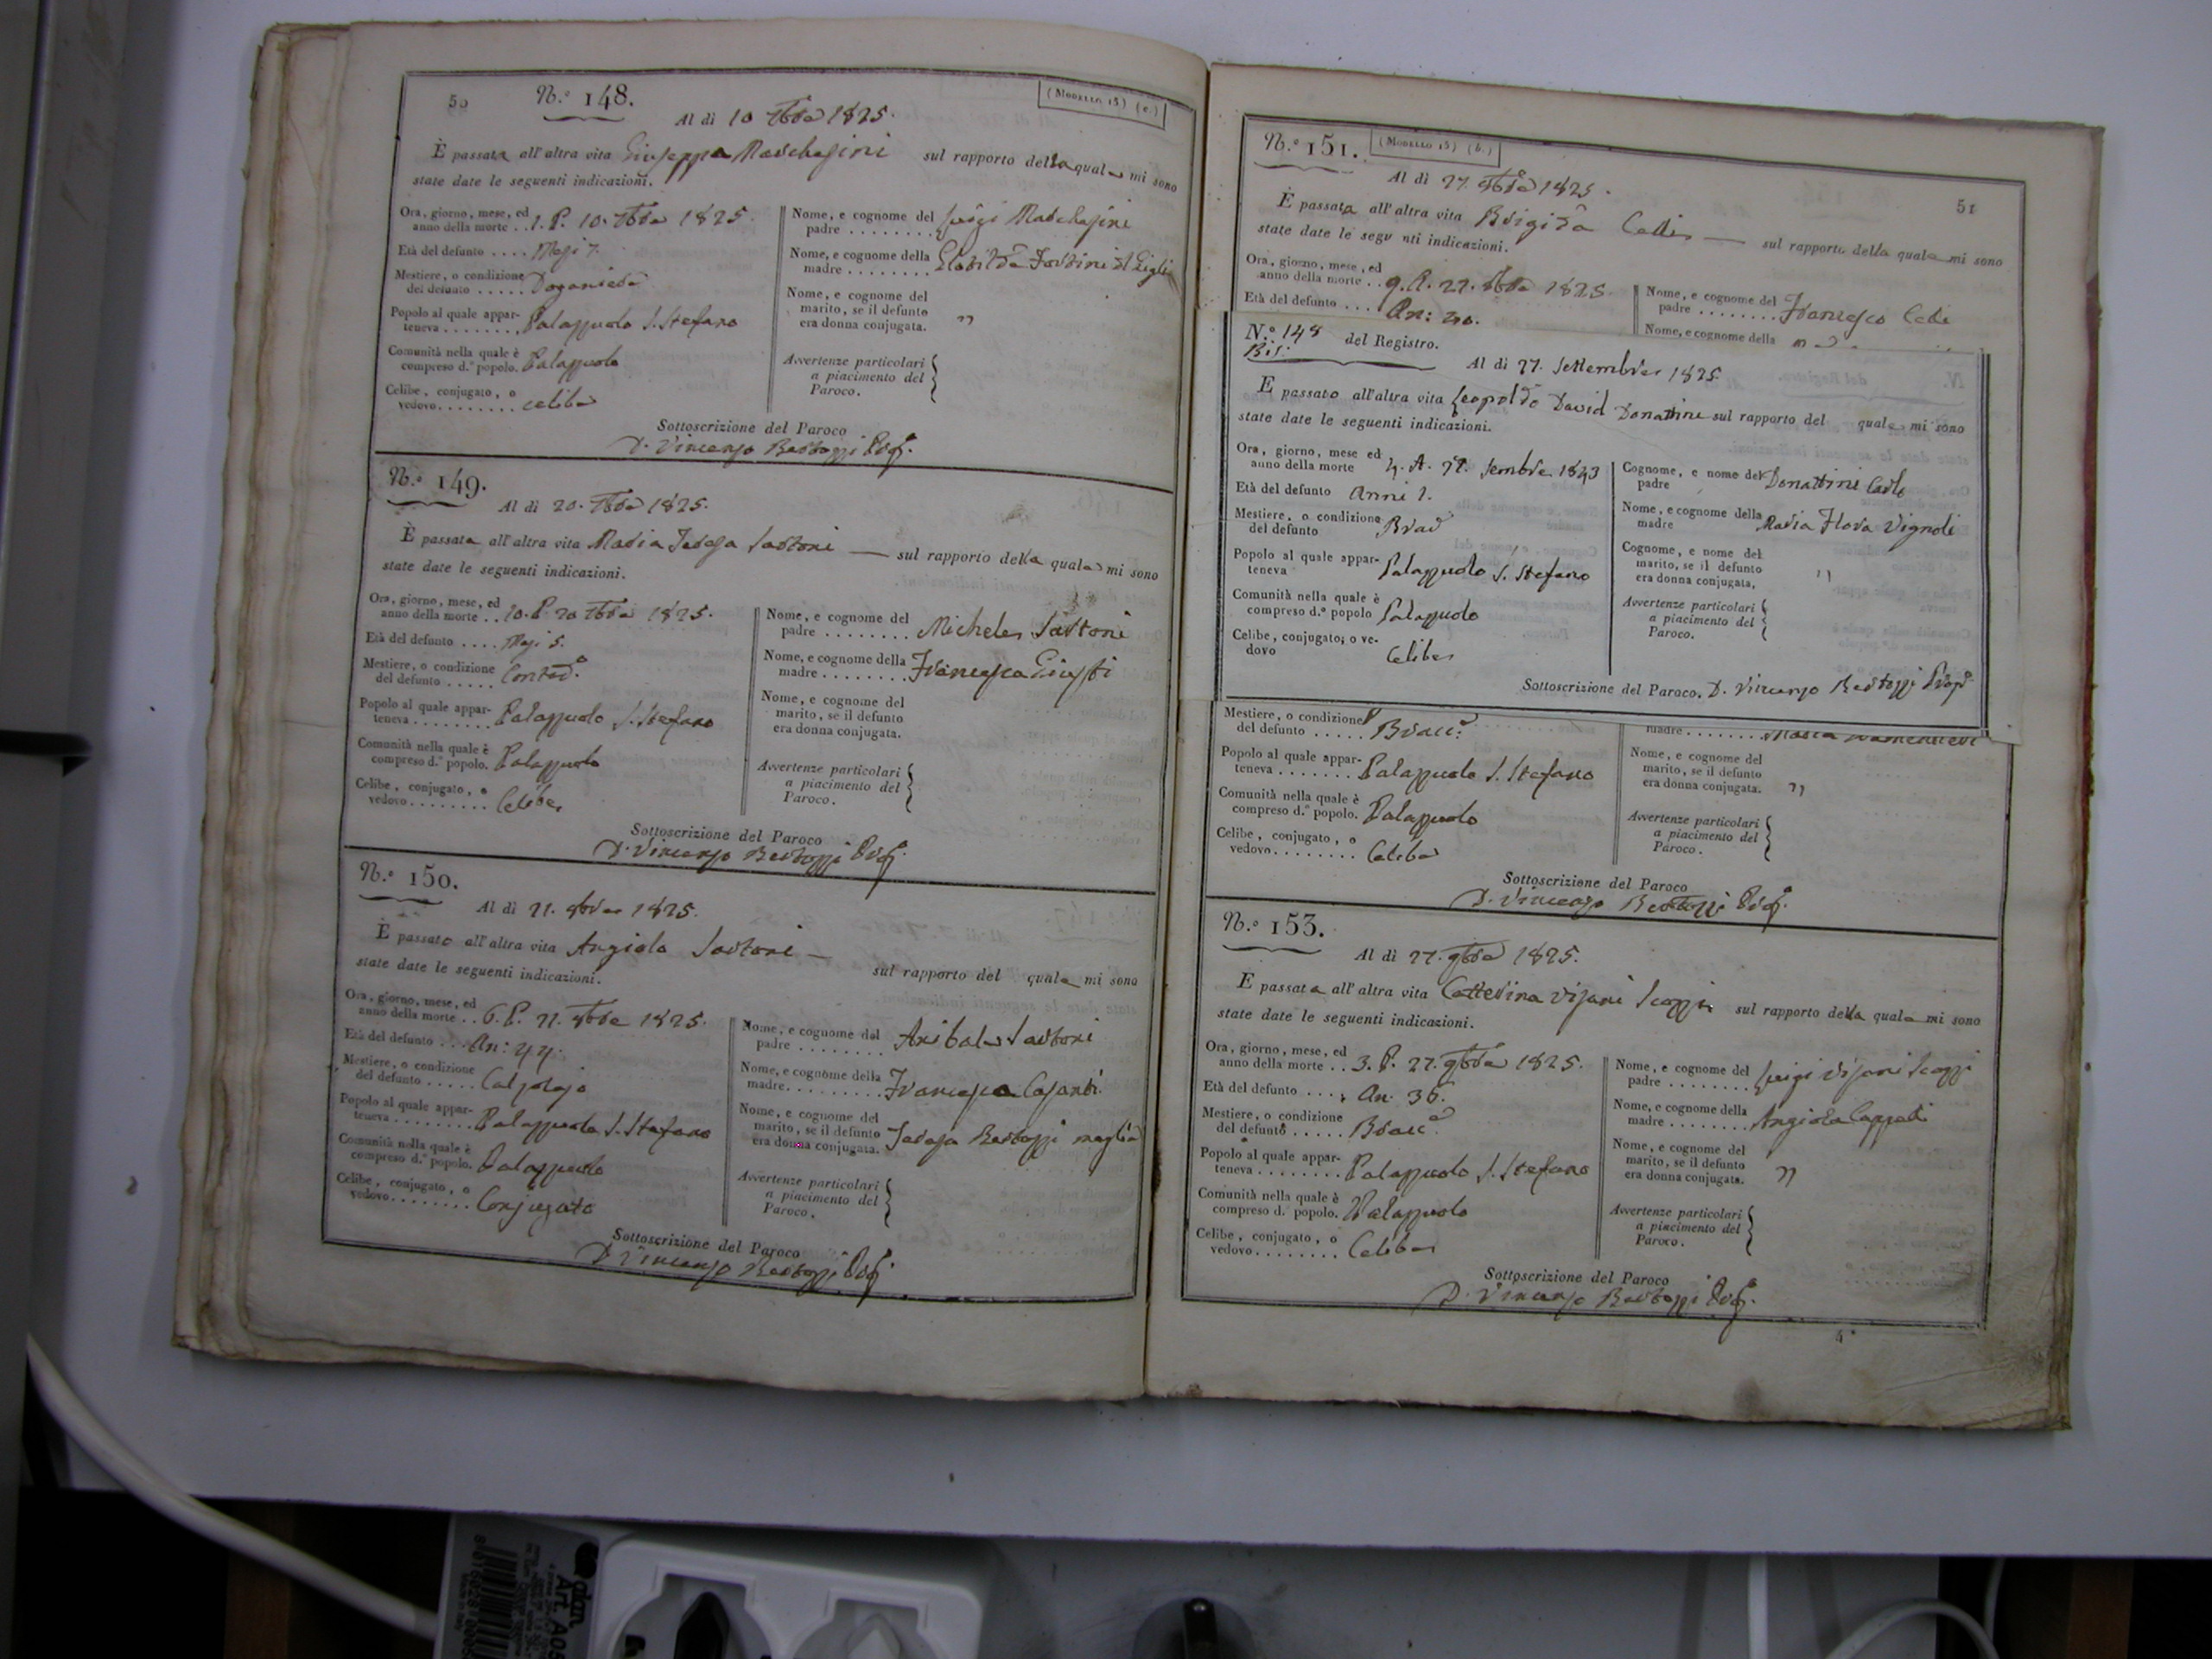 50
N.º 148.
(Modello 15) (c.)
Al dì 10 7bre 1825.
È passata all'altra vita Giuseppa Marchesini sul rapporto della quale mi sono
state date le seguenti indicazioni.
Ora, giorno, mese, ed
anno della morte . . 1. P. 10. 7bre 1825.
Età del defunto . . . . Mesi 7.
Mestiere, o condizione
del defunto . . . . .
Popolo al quale appar-
teneva . . . . . . . . Palazzuolo S. Stefano
Comunità nella quale è
compreso d.º popolo. Palazzuolo
Celibe, conjugato, o
vedovo. . . . . . . . celibe
Nome, e cognome del
padre . . . . . . . . Luigi Marchesini
Nome, e cognome della
madre . . . . . . . .
Nome, e cognome del
marito, se il defunto
era donna conjugata. "
Avvertenze particolari
a piacimento del
Paroco.
Sottoscrizione del Paroco
D. Vincenzo Bertozzi
N.º 149.
Al dì 20. 7bre 1825.
È passata all'altra vita Maria Teresa Sartoni — sul rapporto della quale mi sono
state date le seguenti indicazioni.
Ora, giorno, mese, ed
anno della morte . . 10. P. 20 7bre 1825.
Età del defunto . . . . Mesi 5.
Mestiere, o condizione
del defunto . . . . . Contad.ª
Popolo al quale appar-
teneva . . . . . . . . Palazzuolo S. Stefano
Comunità nella quale è
compreso d.º popolo. Palazzuolo
Celibe, conjugato, o
vedovo. . . . . . . . Celibe
Nome, e cognome del
padre . . . . . . . . Michele Sartoni
Nome, e cognome della
madre . . . . . . . . Francesca Giusti
Nome, e cognome del
marito, se il defunto
era donna conjugata.
Avvertenze particolari
a piacimento del
Paroco.
Sottoscrizione del Paroco
D. Vincenzo Bertozzi
N.º 150.
Al dì 21. 9bre 1825.
È passato all'altra vita Angiolo Sartoni — sul rapporto del quale mi sono
state date le seguenti indicazioni.
Ora, giorno, mese, ed
anno della morte . . 6. P. 21. 9bre 1825.
Età del defunto . . . An: 44.
Mestiere, o condizione
del defunto . . . . . Calzolajo
Popolo al quale appar-
teneva . . . . . . . . Palazzuolo S. Stefano
Comunità nella quale è
compreso d.º popolo. Palazzuolo
Celibe, conjugato, o
vedovo. . . . . . . . Conjugato
Nome, e cognome del
padre . . . . . . . . Anibale Sartoni
Nome, e cognome della
madre. . . . . . . . . Francesca
Nome, e cognome del
marito, se il defunto
era donna conjugata. Teresa Bertozzi moglie
Avvertenze particolari
a piacimento del
Paroco.
Sottoscrizione del Paroco
D Vincenzo Bertozzi
N.º 151.
(Modello 15) (b.)
51
Al dì 27. 9bre 1825.
È passata all'altra vita Brigida — sul rapporto della quale mi sono
state date le segu nti indicazioni.
Ora, giorno, mese, ed
anno della morte . . 9. A. 27. 9bre 1825.
Età del defunto . . . .
Nome, e cognome del
padre . . . . . . . . Francesco
Nome, e cognome della
N.º 148 del Registro.
Bis.
Al dì 27. Settembre 1825.
È passato all'altra vita Leopoldo David Donattini sul rapporto del quale mi sono
state date le seguenti indicazioni.
Ora, giorno, mese ed
anno della morte 4. A.
Età del defunto Anni 1.
Mestiere, o condizione
del defunto
Popolo al quale appar-
teneva Palazzuolo S. Stefano
Comunità nella quale è
compreso d.º popolo Palazzuolo
Celibe, conjugato, o ve-
dovo Celibe
Cognome, e nome del
padre Donattini Carlo
Nome, e cognome della
madre Maria Flora Vignoli
Cognome, e nome del
marito, se il defunto
era donna conjugata, "
Avvertenze particolari
a piacimento del
Paroco.
Sottoscrizione del Paroco. D. Vincenzo Bertozzi
Mestiere, o condizione
del defunto . . . . . Bracc.e
Popolo al quale appar-
teneva . . . . . . . . Palazzuolo S. Stefano
Comunità nella quale è
compreso d.º popolo. Palazzuolo
Celibe, conjugato, o
vedovo. . . . . . . . Celibe
madre . . . . . . . . Maria
Nome, e cognome del
marito, se il defunto
era donna conjugata. "
Avvertenze particolari
a piacimento del
Paroco.
Sottoscrizione del Paroco
D. Vincenzo Bertozzi
N.º 153.
Al dì 27. 9bre 1825.
È passata all'altra vita Catterina Visani Scozzi sul rapporto della quale mi sono
state date le seguenti indicazioni.
Ora, giorno, mese, ed
anno della morte . . 3. P. 27. 9bre 1825.
Età del defunto . . . . An. 36.
Mestiere, o condizione
del defunto . . . . . Bracc.e
Popolo al quale appar-
teneva . . . . . . . . Palazzuolo S. Stefano
Comunità nella quale è
compreso d.º popolo. Palazzuolo
Celibe, conjugato, o
vedovo. . . . . . . . Celibe
Nome, e cognome del
padre . . . . . . . . Luigi Visani Scozzi
Nome, e cognome della
madre . . . . . . . . Angiola
Nome, e cognome del
marito, se il defunto
era donna conjugata. "
Avvertenze particolari
a piacimento del
Paroco.
Sottoscrizione del Paroco
D. Vincenzo Bertozzi
4*
Art. A05